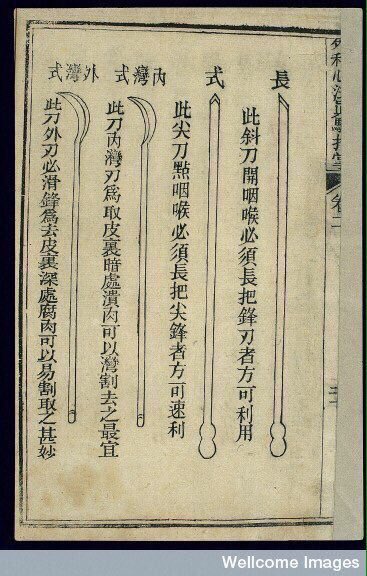 外科心法真驗指掌
卷二
長式
此斜刀開咽喉必須長把鋒刃者方可利用
此尖刀點咽喉必須長把尖鋒者方可速利
內灣式
此刀內灣刃爲取皮裏暗處潰肉可以灣割去之最宜
外灣式
此刀外刃必滑鋒爲去皮裏深處腐肉可以易割取之甚妙
Wellcome Images